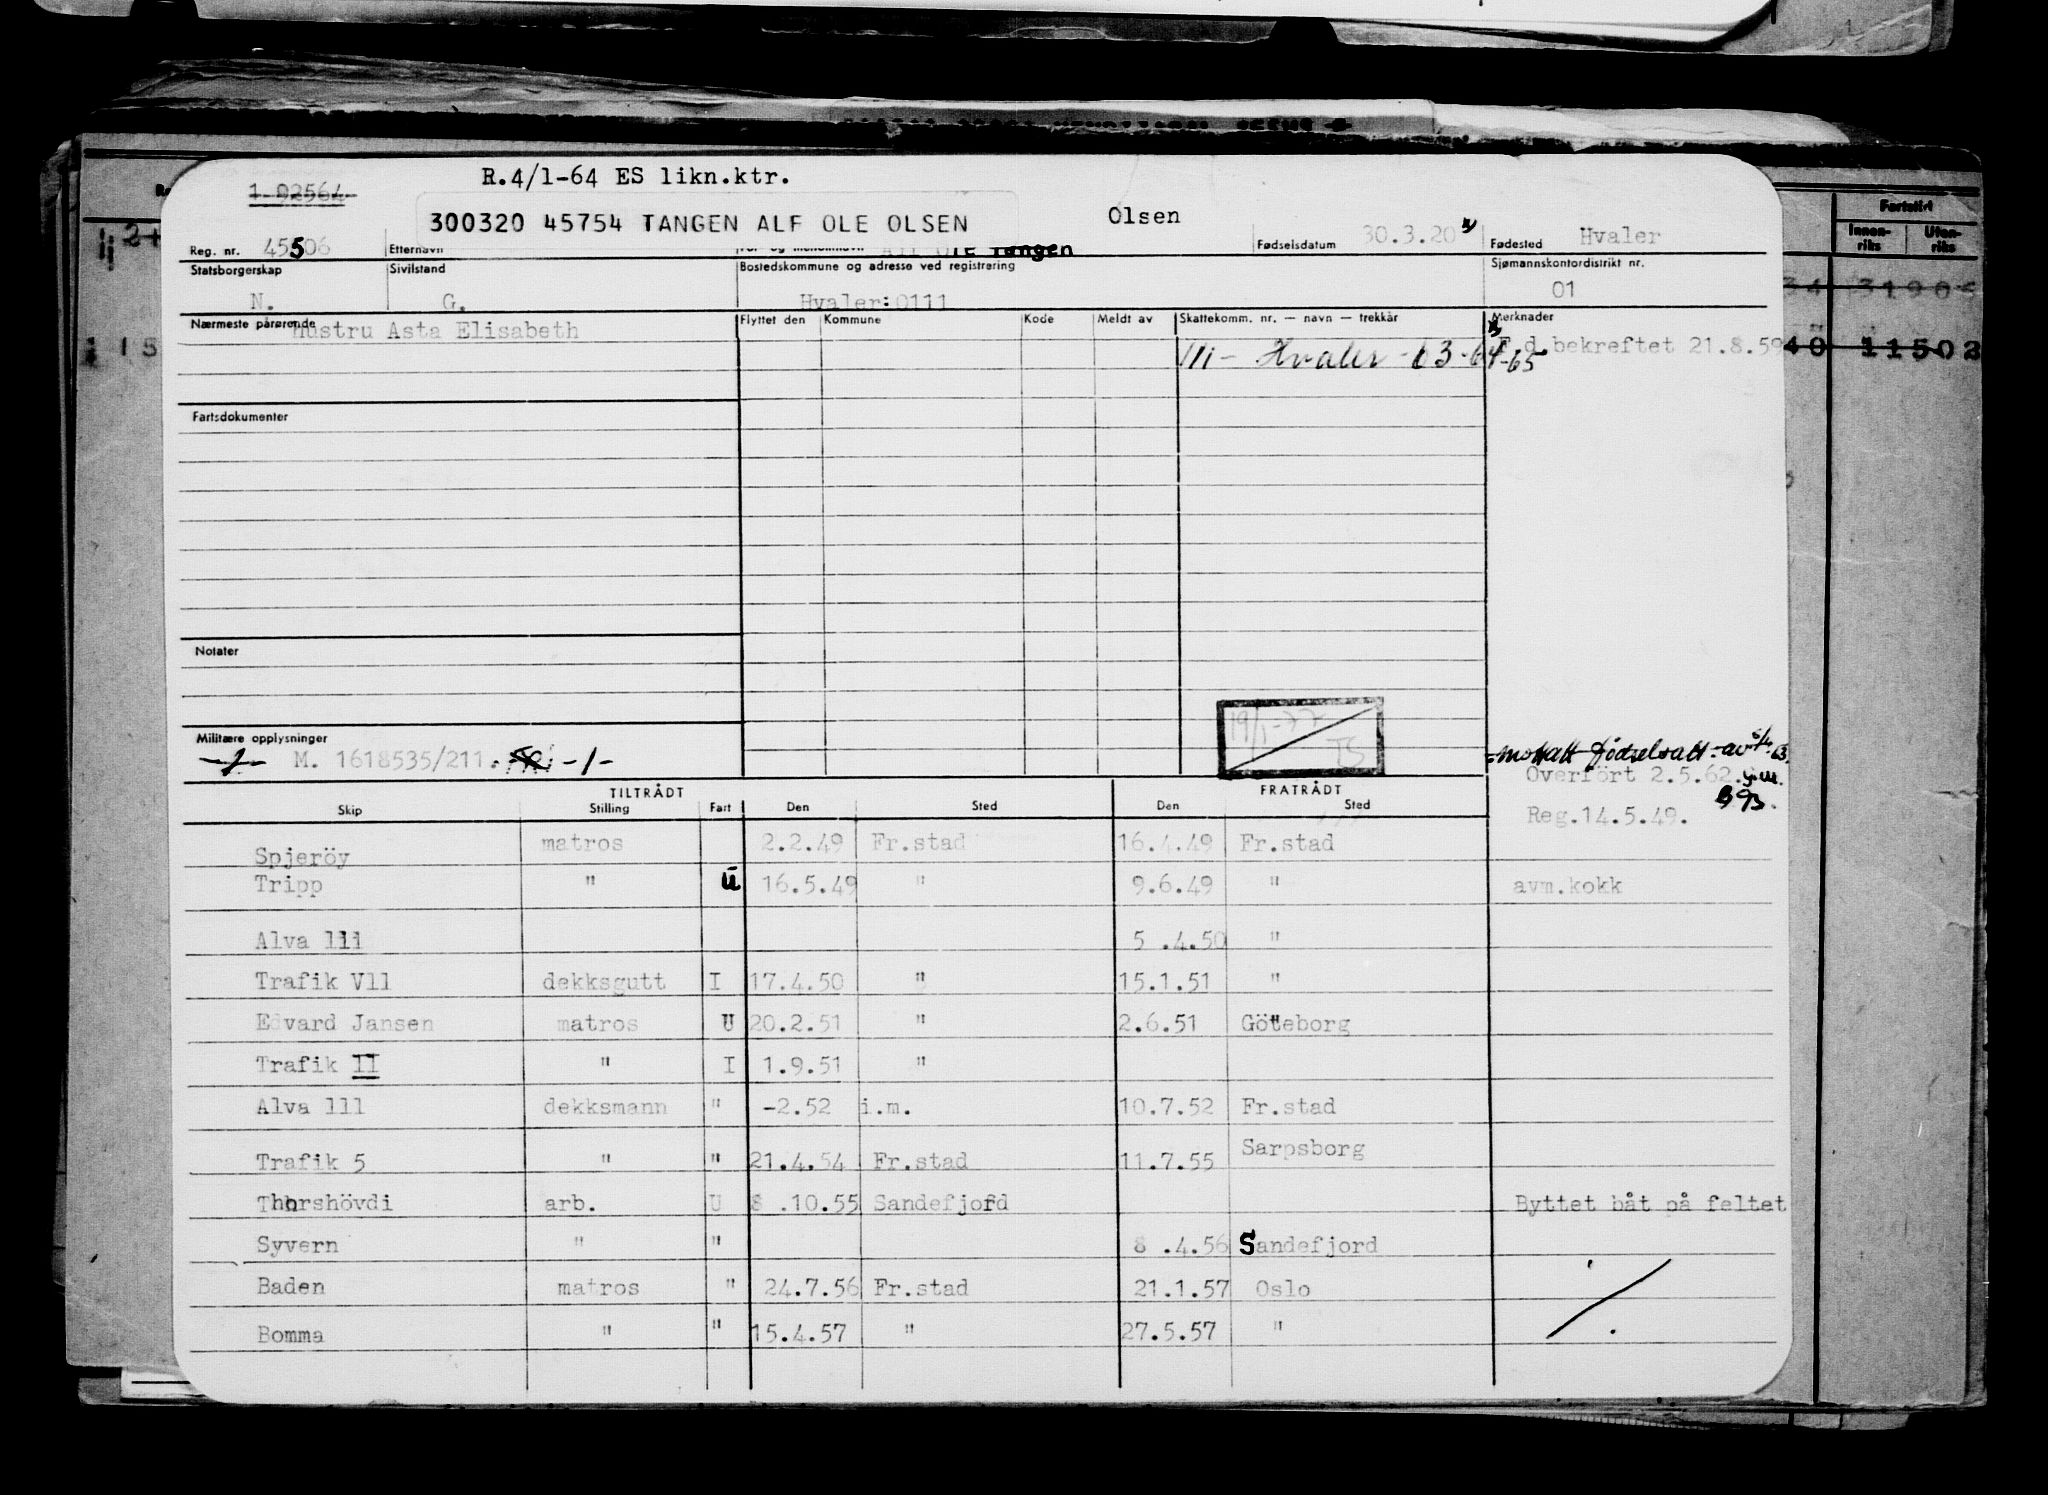 R.4/1-64 ES likn.ktr.
1 92564
300320 45754 TANGEN ALF OLE OLSEN
Olsen
Reg. nr. 45506 Etternavn For- og mellomnavn Alf Ole Tangen Fødselsdatum 30.3.20 Fødested Hvaler
Statsborgerskap Sivilstand Bostedskommune og adresse ved registrering Sjømannskontordistrikt nr.
N. G. Hvaler:0111 01
Nærmeste pårørende Hustru Asta Elisabeth Flyttet den Kommune Kode Meldt av Skattekomm. nr. — navn — trekkår Merknader
111- Hvaler -63-64-65 F.d.bekreftet 21.8.59
Fartsdokumenter
Notater
19/1-77
TS
Militære opplysninger
-1- M. 1618535/211. -1-
mottatt fødselsatt.
Overfört 2.5.62.
Reg.14.5.49.
TILTRÅDT FRATRÅDT
Skip Stilling Fart Den Sted Den Sted
Spjeröy matros 2.2.49 Fr.stad 16.4.49 Fr.stad
Tripp " U 16.5.49 " 9.6.49 " avm.kokk
Alva lll 5 .4.50 "
Trafik Vll dekksgutt I 17.4.50 " 15.1.51 "
Edvard Jansen matros U 20.2.51 " 2.6.51 Göteborg
Trafik II " I 1.9.51 "
Alva lll dekksmann " -2.52 i.m. 10.7.52 Fr.stad
Trafik 5 " " 21.4.54 Fr.stad 11.7.55 Sarpsborg
Thorshövdi arb. U 8 .10.55 Sandefjord Byttet båt på feltet
Syvern " " 8 .4.56 Sandefjord
Baden matros " 24.7.56 Fr.stad 21.1.57 Oslo
Bomma " " 15.4.57 " 27.5.57 "
Fartstid
Innen-riks Uten-riks
34 31906
40 11502